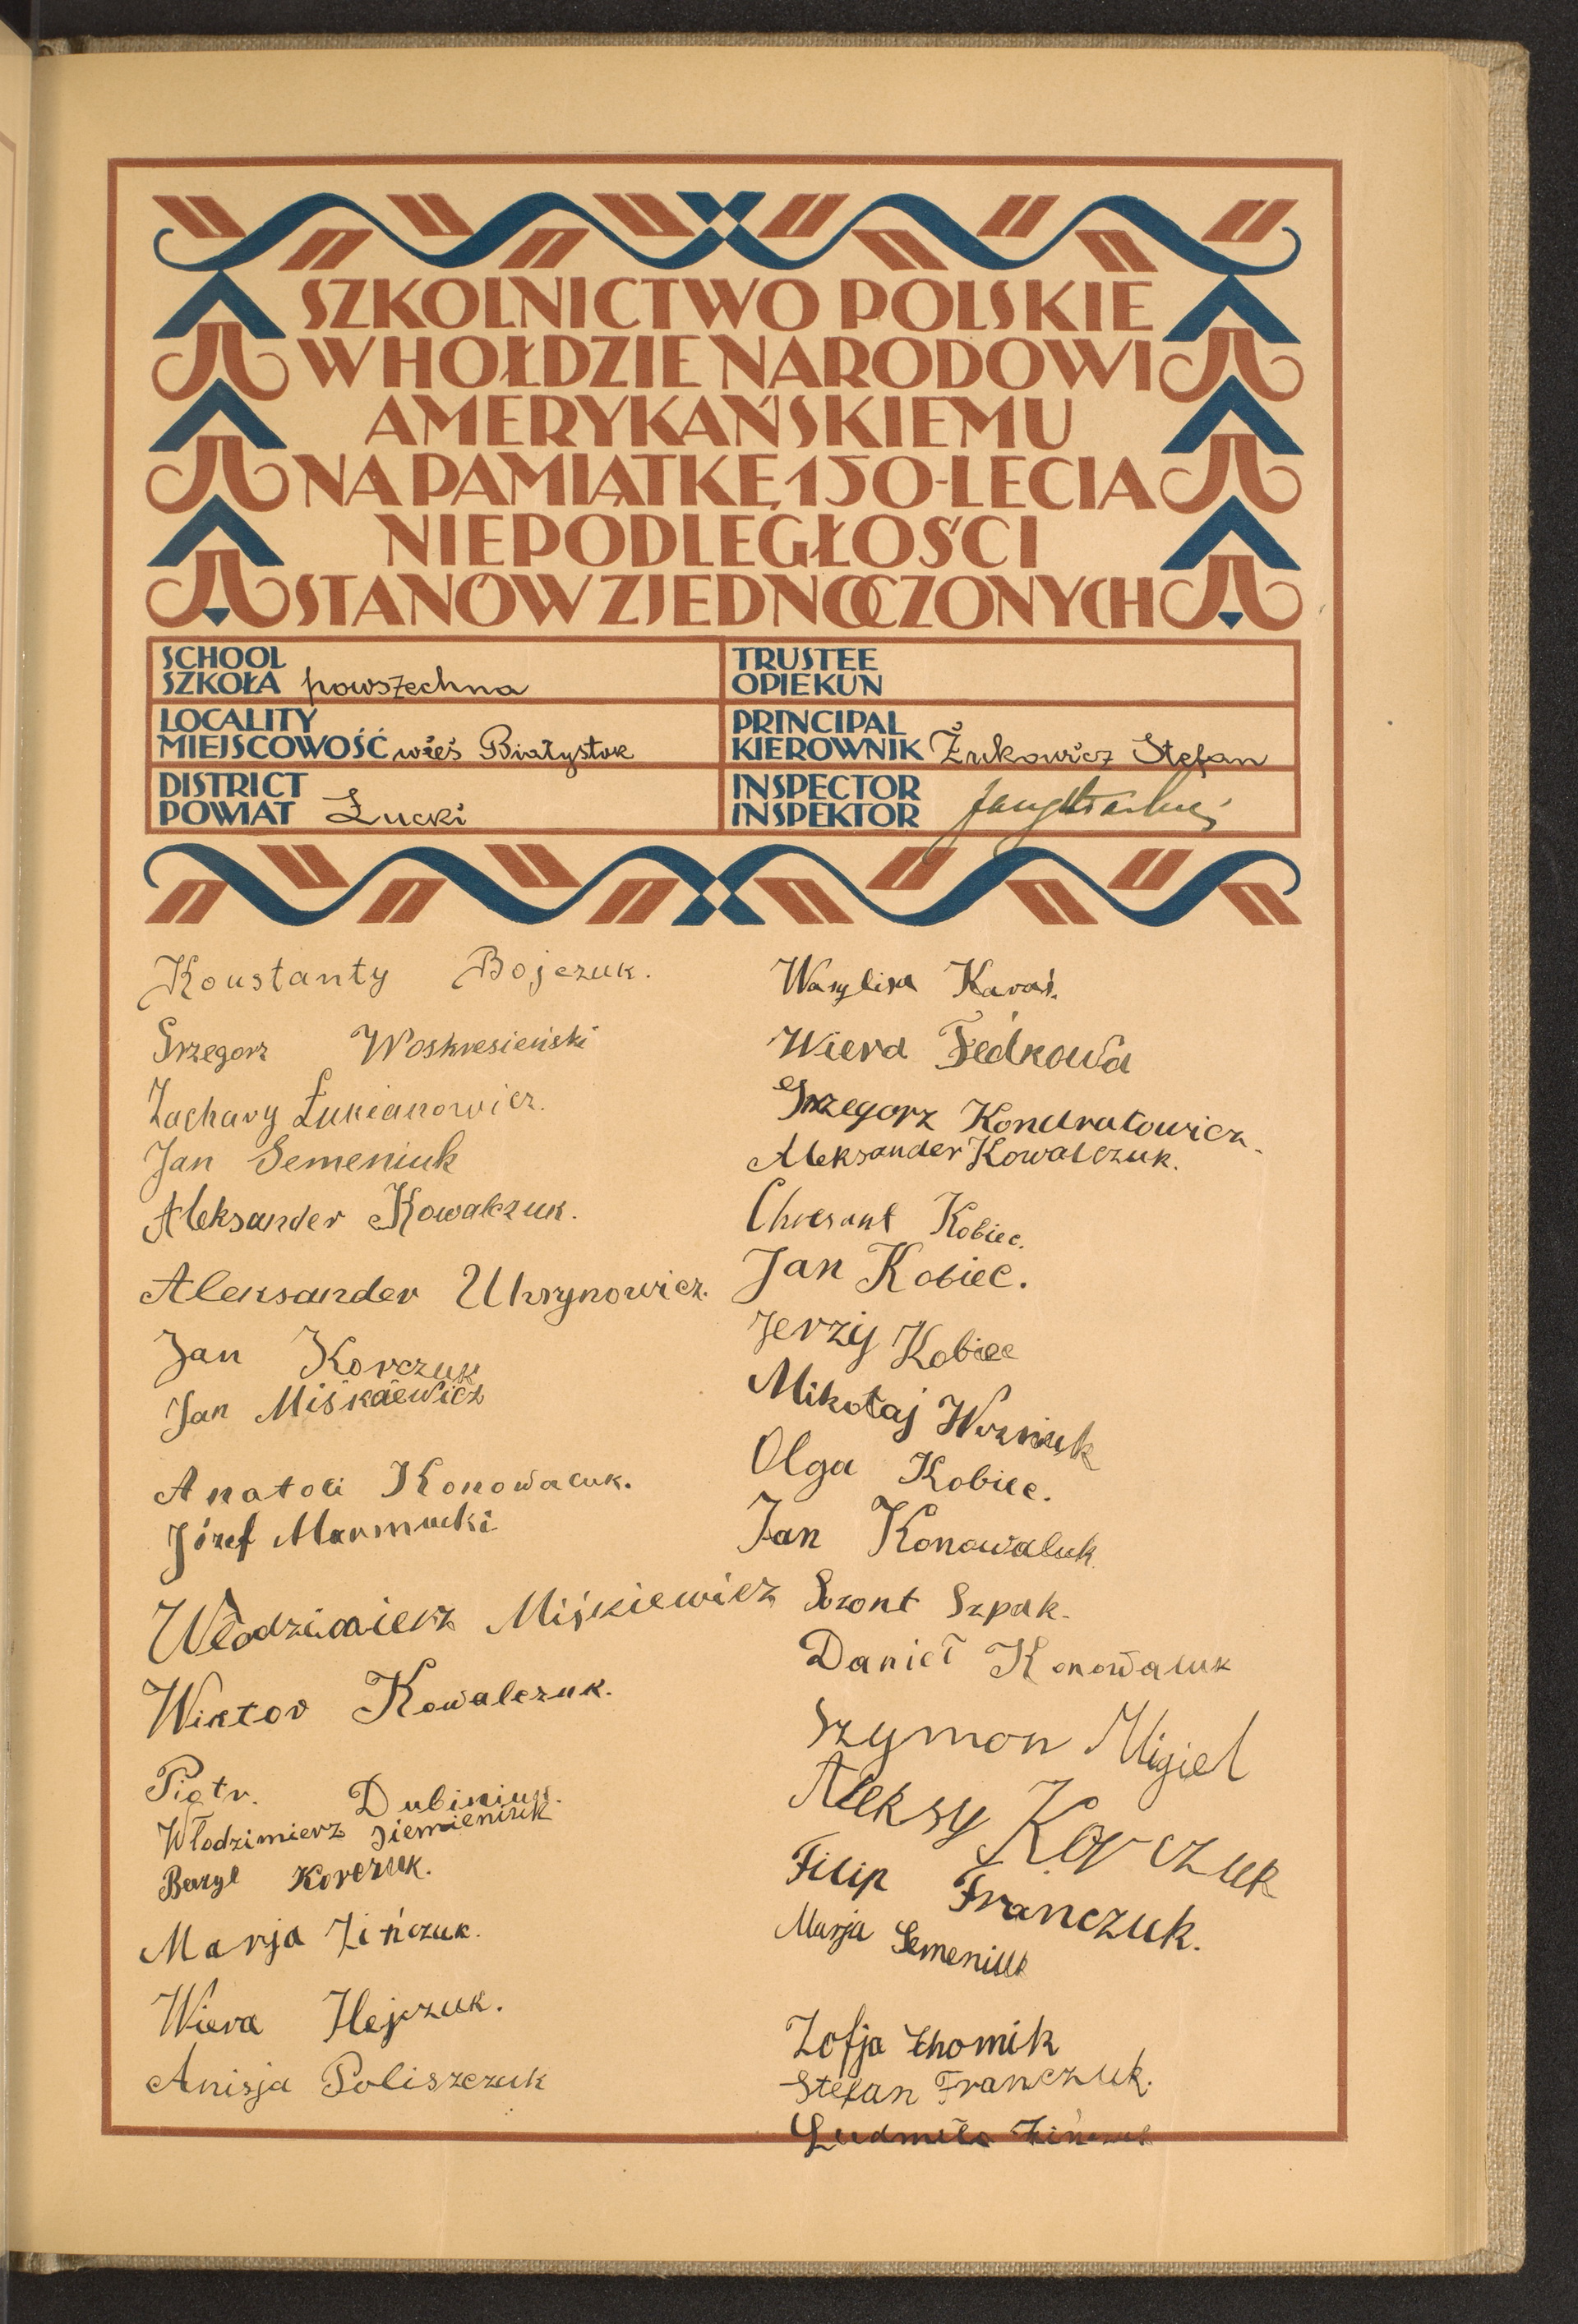 SZKOLNICTWO POLSKIE
W HOŁDZIE NARODOWI
AMERYKAŃSKIEMU
NA PAMIĄTKĘ 150-LECIA
NIEPODLEGŁOŚCI
STANÓW ZJEDNOCZONYCH
SCHOOL
SZKOŁA powszechna
TRUSTEE
OPIEKUN
LOCALITY
MIEJSCOWOŚĆ wieś Białystok
PRINCIPAL
KIEROWNIK Żukowicz Stefan
DISTRICT
POWIAT Łucki
INSPECTOR
INSPEKTOR
Konstanty Bojczuk.
Grzegorz Woskresieński
Zachary Łukianowicz.
Jan Semeniuk
Aleksander Kowalczuk.
Aleksander Uhrynowicz.
Jan Korczuk
Jan Miśkaewicz
Anatoli Konowaluk.
Józef Marmucki
Włodzimierz Miśkiewicz
Wiktor Kowalczuk.
Piotr. Dubiniuk.
Włodzimierz Siemieniuk
Bazyl Korczuk.
Marja Zińczuk.
Wiera Hejczuk.
Anisja Poliszczuk
Wasylisa Karaś.
Wiera Fedkowa
Grzegorz Kondratowicz.
Aleksander Kowalczuk.
Chresant Kobiec.
Jan Kobiec.
Jerzy Kobiec
Mikołaj Wozniuk
Olga Kobiec.
Jan Konowaluk
Sozont Szpak.
Danieł Konowaluk
Szymon Migiel
Aleksy Korczuk
Filip Franczuk.
Marja Semeniuk
Zofja Chomik
Stefan Franczuk.
Ludmiła Zińczuk